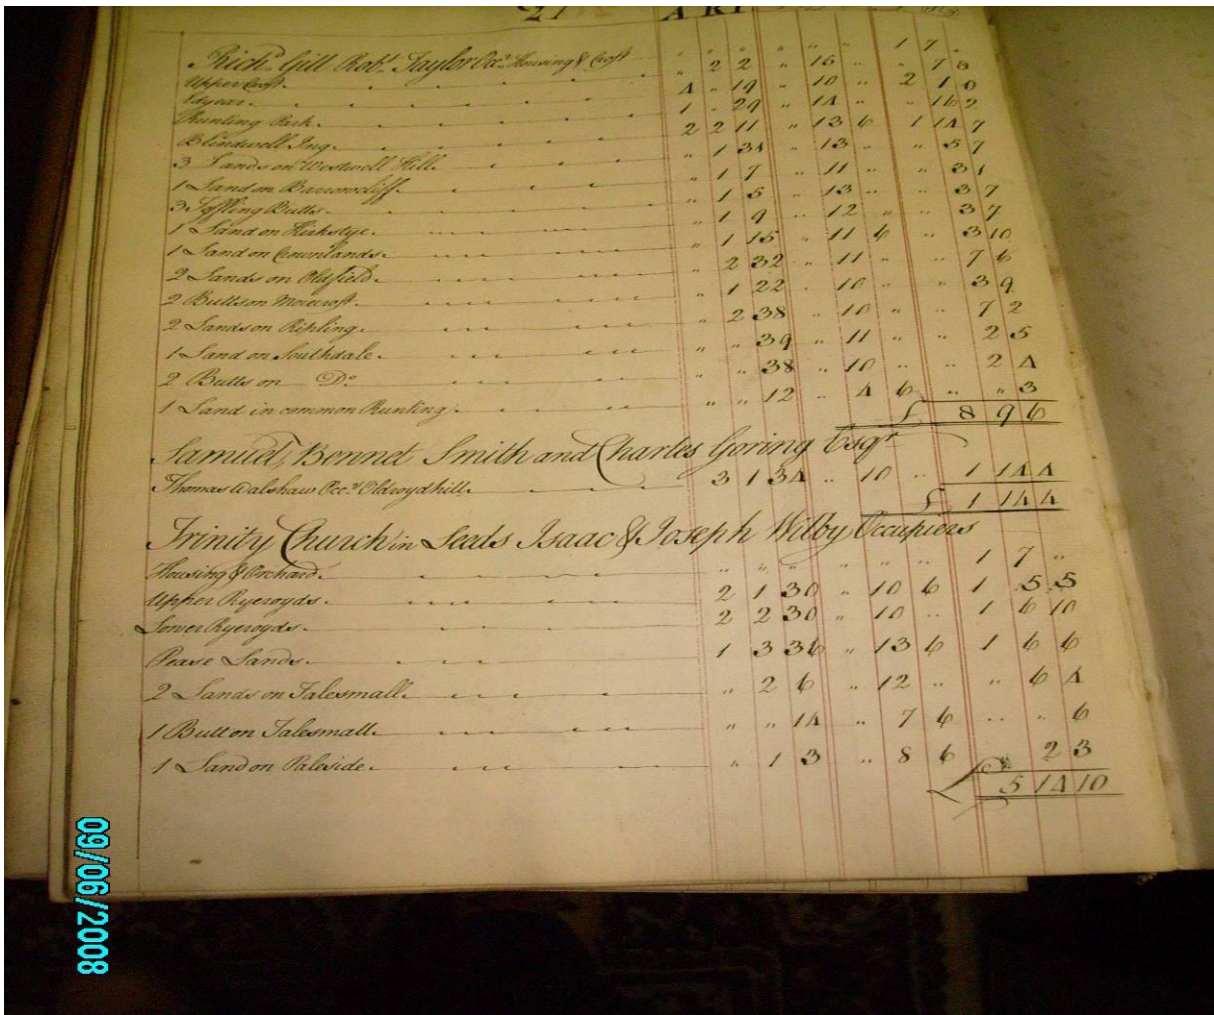 27 A R P
Rich.d Gill Rob.t Taylor Occ.r Housing & Croft " " " " " " 1 7 "
Upper Croft " 2 2 " 15 " " 7 8
Edgear 4 " 19 " 10 " 2 1 0
Hunting Park 1 " 29 " 14 " " 16 2
Blindwell Ing 2 2 11 " 13 6 1 14 7
3 Lands on Westwell Hill " 1 34 " 13 " " 5 7
1 Land on Barrowcliff " 1 7 " 11 " " 3 1
3 Toffling Butts " 1 5 " 13 " " 3 7
1 Land on Kirkstye " 1 9 " 12 " " 3 7
1 Land on Crownlands " 1 15 " 11 6 " 3 10
2 Lands on Oldfield " 2 32 " 11 " " 7 6
2 Butts on Morecroft " 1 22 " 10 " " 3 9
2 Lands on Ripling " 2 38 " 10 " " 7 2
1 Land on Southdale " " 39 " 11 " " 2 5
2 Butts on D.o " " 38 " 10 " " 2 4
1 Land in common Hunting " " 12 " 4 6 " " 3
£ 8 9 6
Samuel, Bennet Smith and Charles Goring Esq.r
Thomas Walshaw Occ.r Oldroydhill 3 1 34 " 10 " 1 14 4
£ 1 14 4
Trinity Church in Leeds Isaac & Joseph Wilby Occupiers
Housing & Orchard " " " " " " 1 7 "
Upper Ryeroyds 2 1 30 " 10 6 1 5 5
Lower Ryeroyds 2 2 30 " 10 " 1 6 10
Pease Lands 1 3 36 " 13 6 1 6 6
2 Lands on Falesmall " 2 6 " 12 " " 6 4
1 Butt on Falesmall " " 14 " 7 6 " " 6
1 Land on Paleside " 1 3 " 8 6 " 2 3
£ 5 14 10
09/06/2008